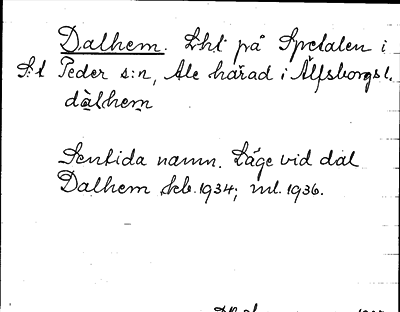 Dalhem. Lht på Spetalen i
S:t Peder s:n, Ale härad i Älfsborgs l.
dàlhem
Sentida namn. Läge vid dal
Dalhem skb. 1934; ml. 1936.